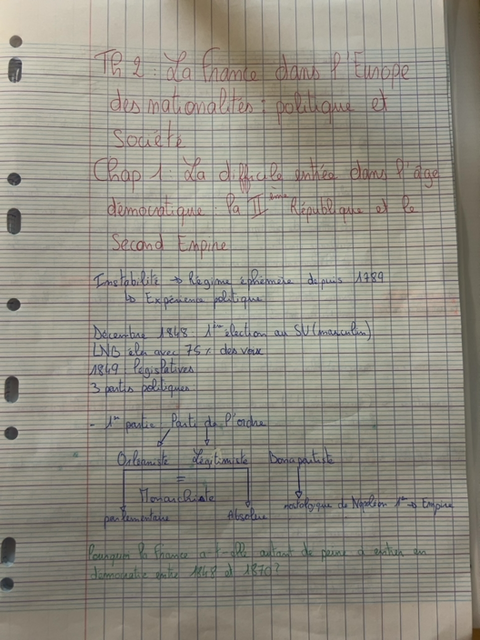 Th 2 : La France dans l'Europe
des nationalités : politique et
Société
Chap 1 : La difficile entrée dans l'âge
démocratique : la IIème République et le
Second Empire
Instabilité → Régime éphémère depuis 1789
↳ Expérience politique
Décembre 1848 1ère élection au SU (masculin)
LNB élu avec 75 % des voix
1849 législatives
3 partis politiques
- 1er partie Parti de l'ordre
Orléaniste Légitimiste Bonapartiste
=
Monarchiste
parlementaire Absolue nostalgique de Napoléon 1er → Empire
Pourquoi la France a-t-elle autant de peine à entrer en
démocratie entre 1848 et 1870 ?